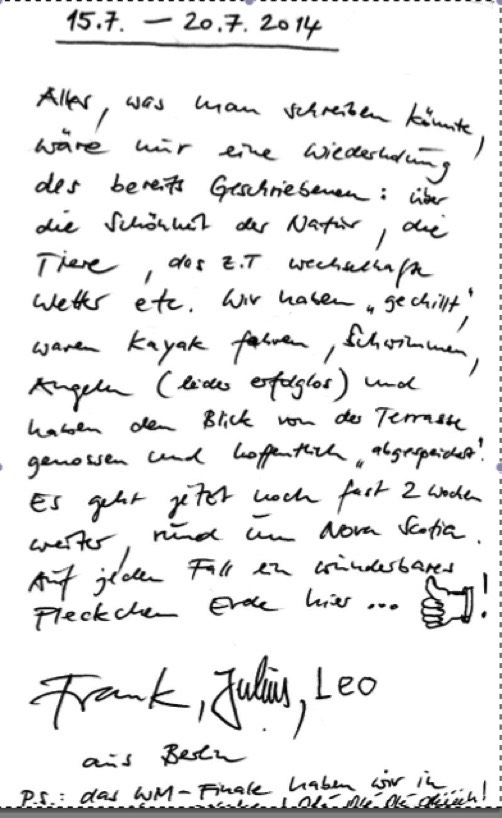 15.7. – 20.7.2014
Alles, was man schreiben könnte,
wäre nur eine Wiederholung
des bereits Geschriebenen: über
die Schönheit der Natur, die
Tiere, das z.T wechselhafte
Wetter etc. Wir haben „gechillt",
waren Kayak fahren, Schwimmen,
Angeln (leider erfolglos) und
haben den Blick von der Terrasse
genossen und hoffentlich „abgespeichert".
Es geht jetzt noch fast 2 Wochen
weiter, rund um Nova Scotia.
Auf jeden Fall ein wunderbares
Fleckchen Erde hier ... !
Frank, Julius, Leo
aus Berlin
P.S.: das WM-Finale haben wir in